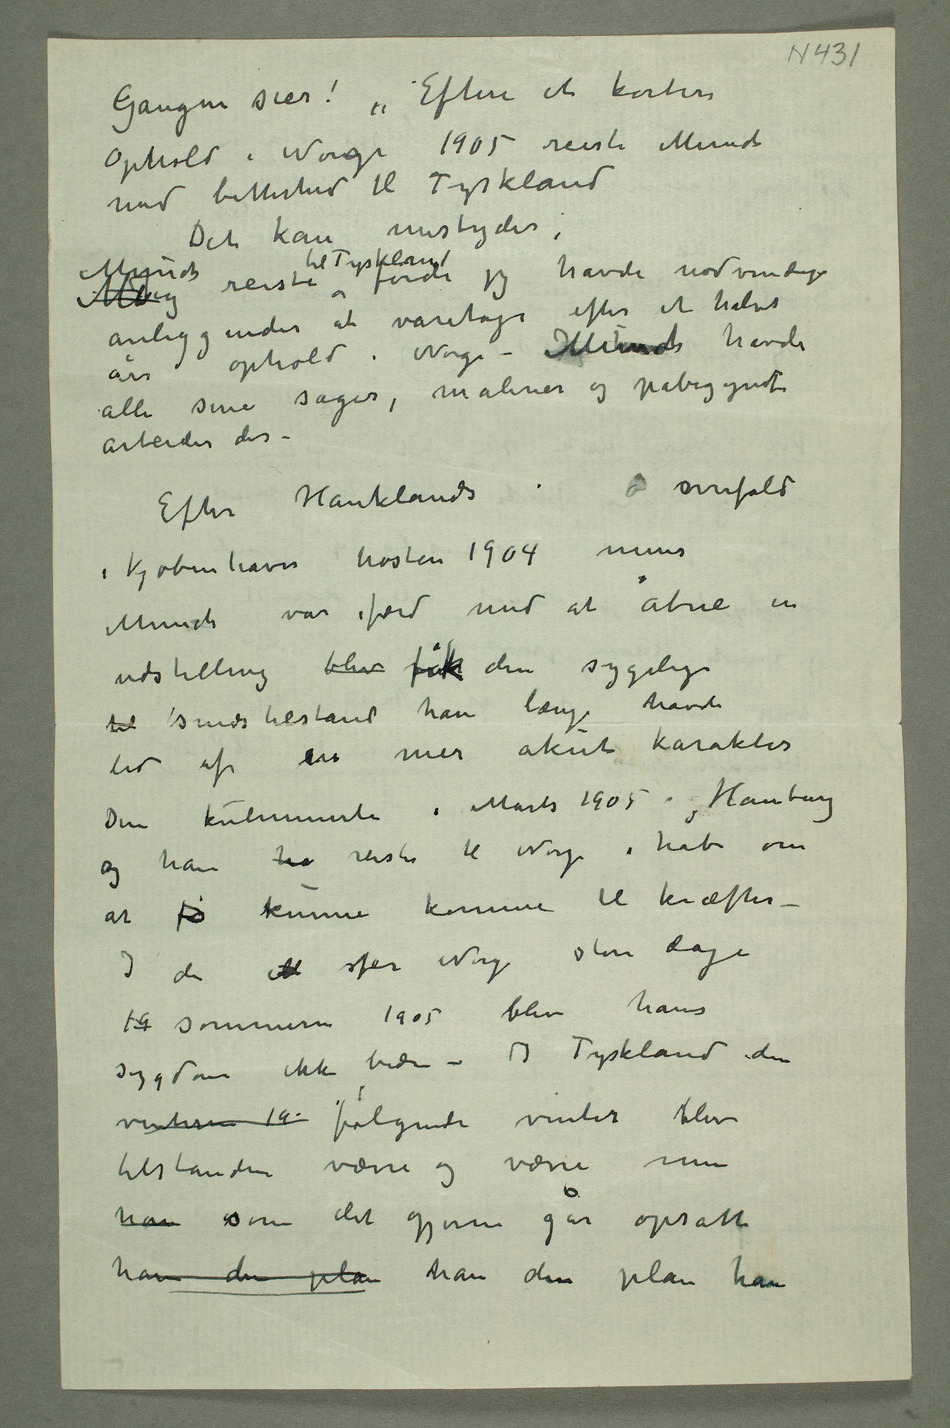 N431
Gaugin sier! „Efter et kortere
Ophold i Norge 1905 reiste Munch
med bitterhed til Tyskland
Det kan mistydes,
Munch reiste til Tyskland fordi jeg havde nødvendige
anliggender at varetage efter et halvt
års ophold i Norge – Munch havde
alle sine sager, malerier og påbegyndte
arbeider der –
Efter Hauklands overfald
i Kjøbenhavn høsten 1904 mens
Munch var ifærd med at åbne en
udstilling blev fik den sygelige
til sindstilstand han længe havde
lid af en mer akut karakter
Den kulminerte i Marts 1905 i Hamburg
og han ha reiste til Norge i håb om
at få kunne komme til kræfter –
I de for Norge store dage
19 sommeren 1905 blev hans
sygdom ikke bedre – I Tyskland den
vinteren 19 følgende vinter blev
tilstanden værre og værre men
han som det gjerne går opsatte
han den plan han den plan han